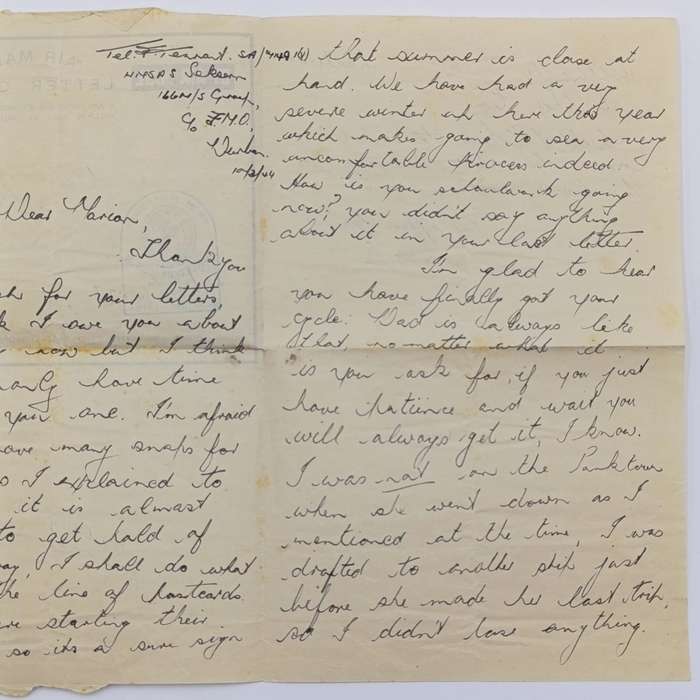 AIR MA
LETTER C
Tel. F. Tennant. SA/71491(V)
HMSAS Seksern
166 M/S Group,
C/o F.M.O,
Durban.
10/9/44
Dear Marion,
Thank you
for your letters,
I owe you about
now but I think
only have time
you one. I'm afraid
have many snaps for
I explained to
it is almost
to get hold of
I shall do what
the line of postcards
starting their
so its a sure sign
that summer is close at
hand. We have had a very
severe winter up here this year
which makes going to sea a very
uncomfortable process indeed.
How is you schoolwork going
now? you didn't say anything
about it in your last letter.
I'm glad to hear
you have finally got your
cycle. Dad is always like
that, no matter what it
is you ask for, if you just
have patience and wait you
will always get it, I know.
I was not on the Parktown
when she went down as I
mentioned at the time, I was
drafted to another ship just
before she made her last trip,
so I didn't lose anything.